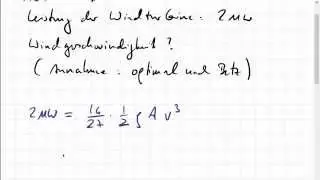 Leistung der Windturbine : 2 MW
Windgeschwindigkeit ?
( Annahme : optimal und Betz )
2MW = 16/27 · 1/2 ρ A v³